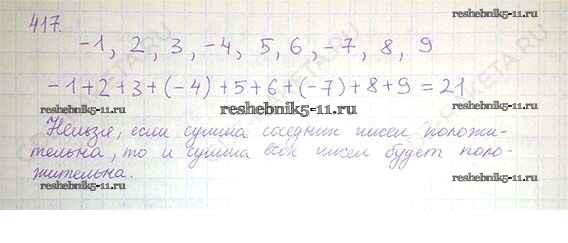 417.
reshebnik5-11.ru
-1, 2, 3, -4, 5, 6, -7, 8, 9
reshebnik5-11.ru
-1+2+3+(-4)+5+6+(-7)+8+9=21
reshebnik5-11.ru
Нельзя, если сумма соседних чисел положи-
тельна, то и сумма всех чисел будет поло-
жительна.
reshebnik5-11.ru
reshebnik5-11.ru